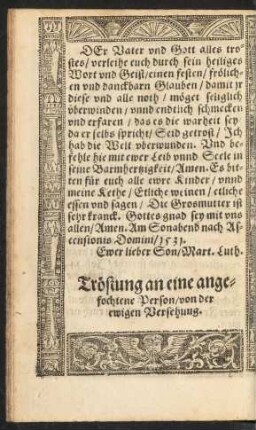 DEr Vater vnd Gott alles tro⸗
stes/ verleihe euch durch sein heiliges
Wort vnd Geist/ einen festen/ frölich⸗
en vnd danckbarn Glauben/ damit jr
diese vnd alle noth/ möget seliglich
vberwinden/ vnnd endtlich schmecken
vnd erfaren/ das es die warheit sey
da er selbs spricht/ Seid getrost/ Ich
hab die Welt vberwunden. Vnd be⸗
fehle hie mit ewer Leib vnnd Seele in
seine Barmhertzigkeit/ Amen. Es bit⸗
ten für euch alle ewre Kinder/ vnnd
meine Kethe/ Etliche weinen/ etliche
essen vnd sagen/ Die Grosmutter ist
sehr kranck. Gottes gnad sey mit vns
allen/ Amen. Am Sonabend nach As⸗
censionis Domini/ 1531.
Ewer lieber Son/ Mart. Luth.
Tröstung an eine ange⸗
fochtene Person/ von der
ewigen Versehung.